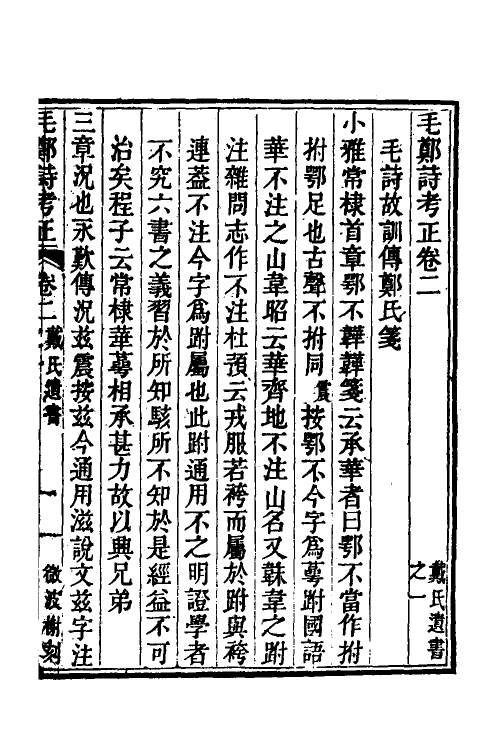 毛鄭詩考正卷二 戴氏遺書之一
毛詩故訓傳鄭氏箋
小雅常棣首章鄂不韡韡箋云承華者曰鄂不當作拊
拊鄂足也古聲不拊同震按鄂不今字為萼跗國語
華不注之山韋昭云華齊地不注山名又韎韋之跗
注雜問志作不注杜預云戎服若袴而屬於跗與袴
連葢不注今字為跗屬也此跗通用不之明證學者
不究六書之義習於所知駭所不知於是經益不可
治矣程子云常棣華萼相承甚力故以興兄弟
三章況也永歎傳況兹震按兹今通用滋說文兹字注
毛鄭詩考正 卷二 戴氏遺書 一 微波榭刻